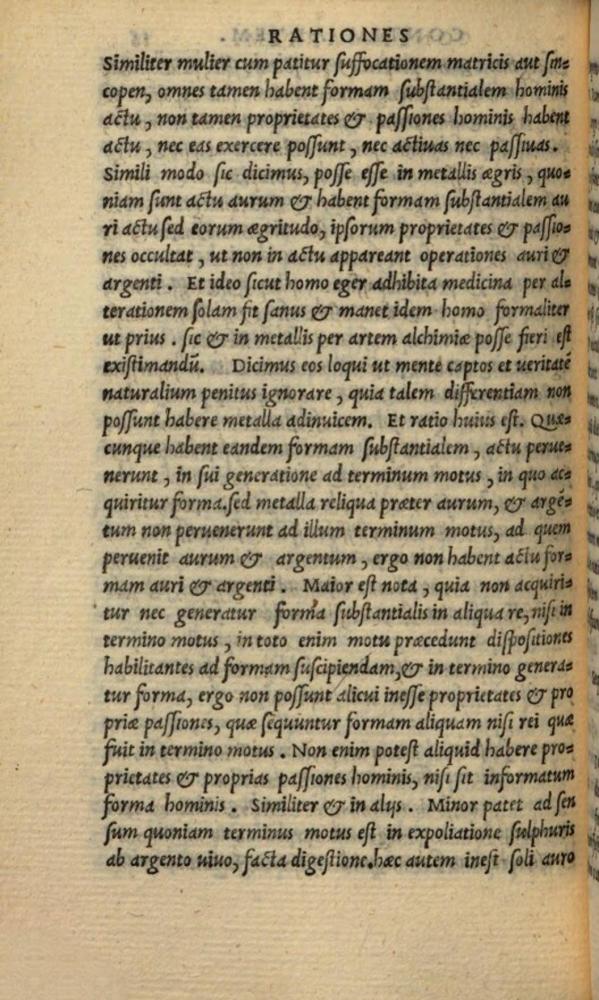 RATIONES
Similiter mulier cum patitur ſuffocationem matricis aut ſin⸗
copen, omnes tamen habent formam ſubſtantialem hominis
actu, non tamen proprietates & paſſiones hominis habent
actu, nec eas exercere poſſunt, nec actiuas nec paſſiuas.
Simili modo ſic dicimus, poſſe eſſe in metallis ægris, quo⸗
niam ſunt actu aurum & habent formam ſubſtantialem au
ri actu ſed eorum ægritudo, ipſorum proprietates & paſſio⸗
nes occultat, ut non in actu appareant operationes auri &
argenti. Et ideo ſicut homo eger adhibita medicina per al⸗
terationem ſolam fit ſanus & manet idem homo formaliter
ut prius. ſic & in metallis per artem alchimiæ poſſe fieri eſt
exiſtimandū. Dicimus eos loqui ut mente captos et ueritatē
naturalium penitus ignorare, quia talem differentiam non
poſſunt habere metalla adinuicem. Et ratio huius eſt. Quæ⸗
cunque habent eandem formam ſubſtantialem, actu perue⸗
nerunt, in ſui generatione ad terminum motus, in quo ac⸗
quiritur forma. ſed metalla reliqua præter aurum, & argē⸗
tum non peruenerunt ad illum terminum motus, ad quem
peruenit aurum & argentum, ergo non habent actu for⸗
mam auri & argenti. Maior eſt nota, quia non acquiri⸗
tur nec generatur forma ſubſtantialis in aliqua re, niſi in
termino motus, in toto enim motu præcedunt diſpoſitiones
habilitantes ad formam ſuſcipiendam, & in termino genera⸗
tur forma, ergo non poſſunt alicui ineſſe proprietates & pro
priæ paſſiones, quæ ſequuntur formam aliquam niſi rei quæ
fuit in termino motus. Non enim poteſt aliquid habere pro⸗
prietates & proprias paſſiones hominis, niſi ſit informatum
forma hominis. Similiter & in alijs. Minor patet ad ſen
ſum quoniam terminus motus eſt in expoliatione ſulphuris
ab argento uiuo, facta digeſtione. hæc autem ineſt ſoli auro